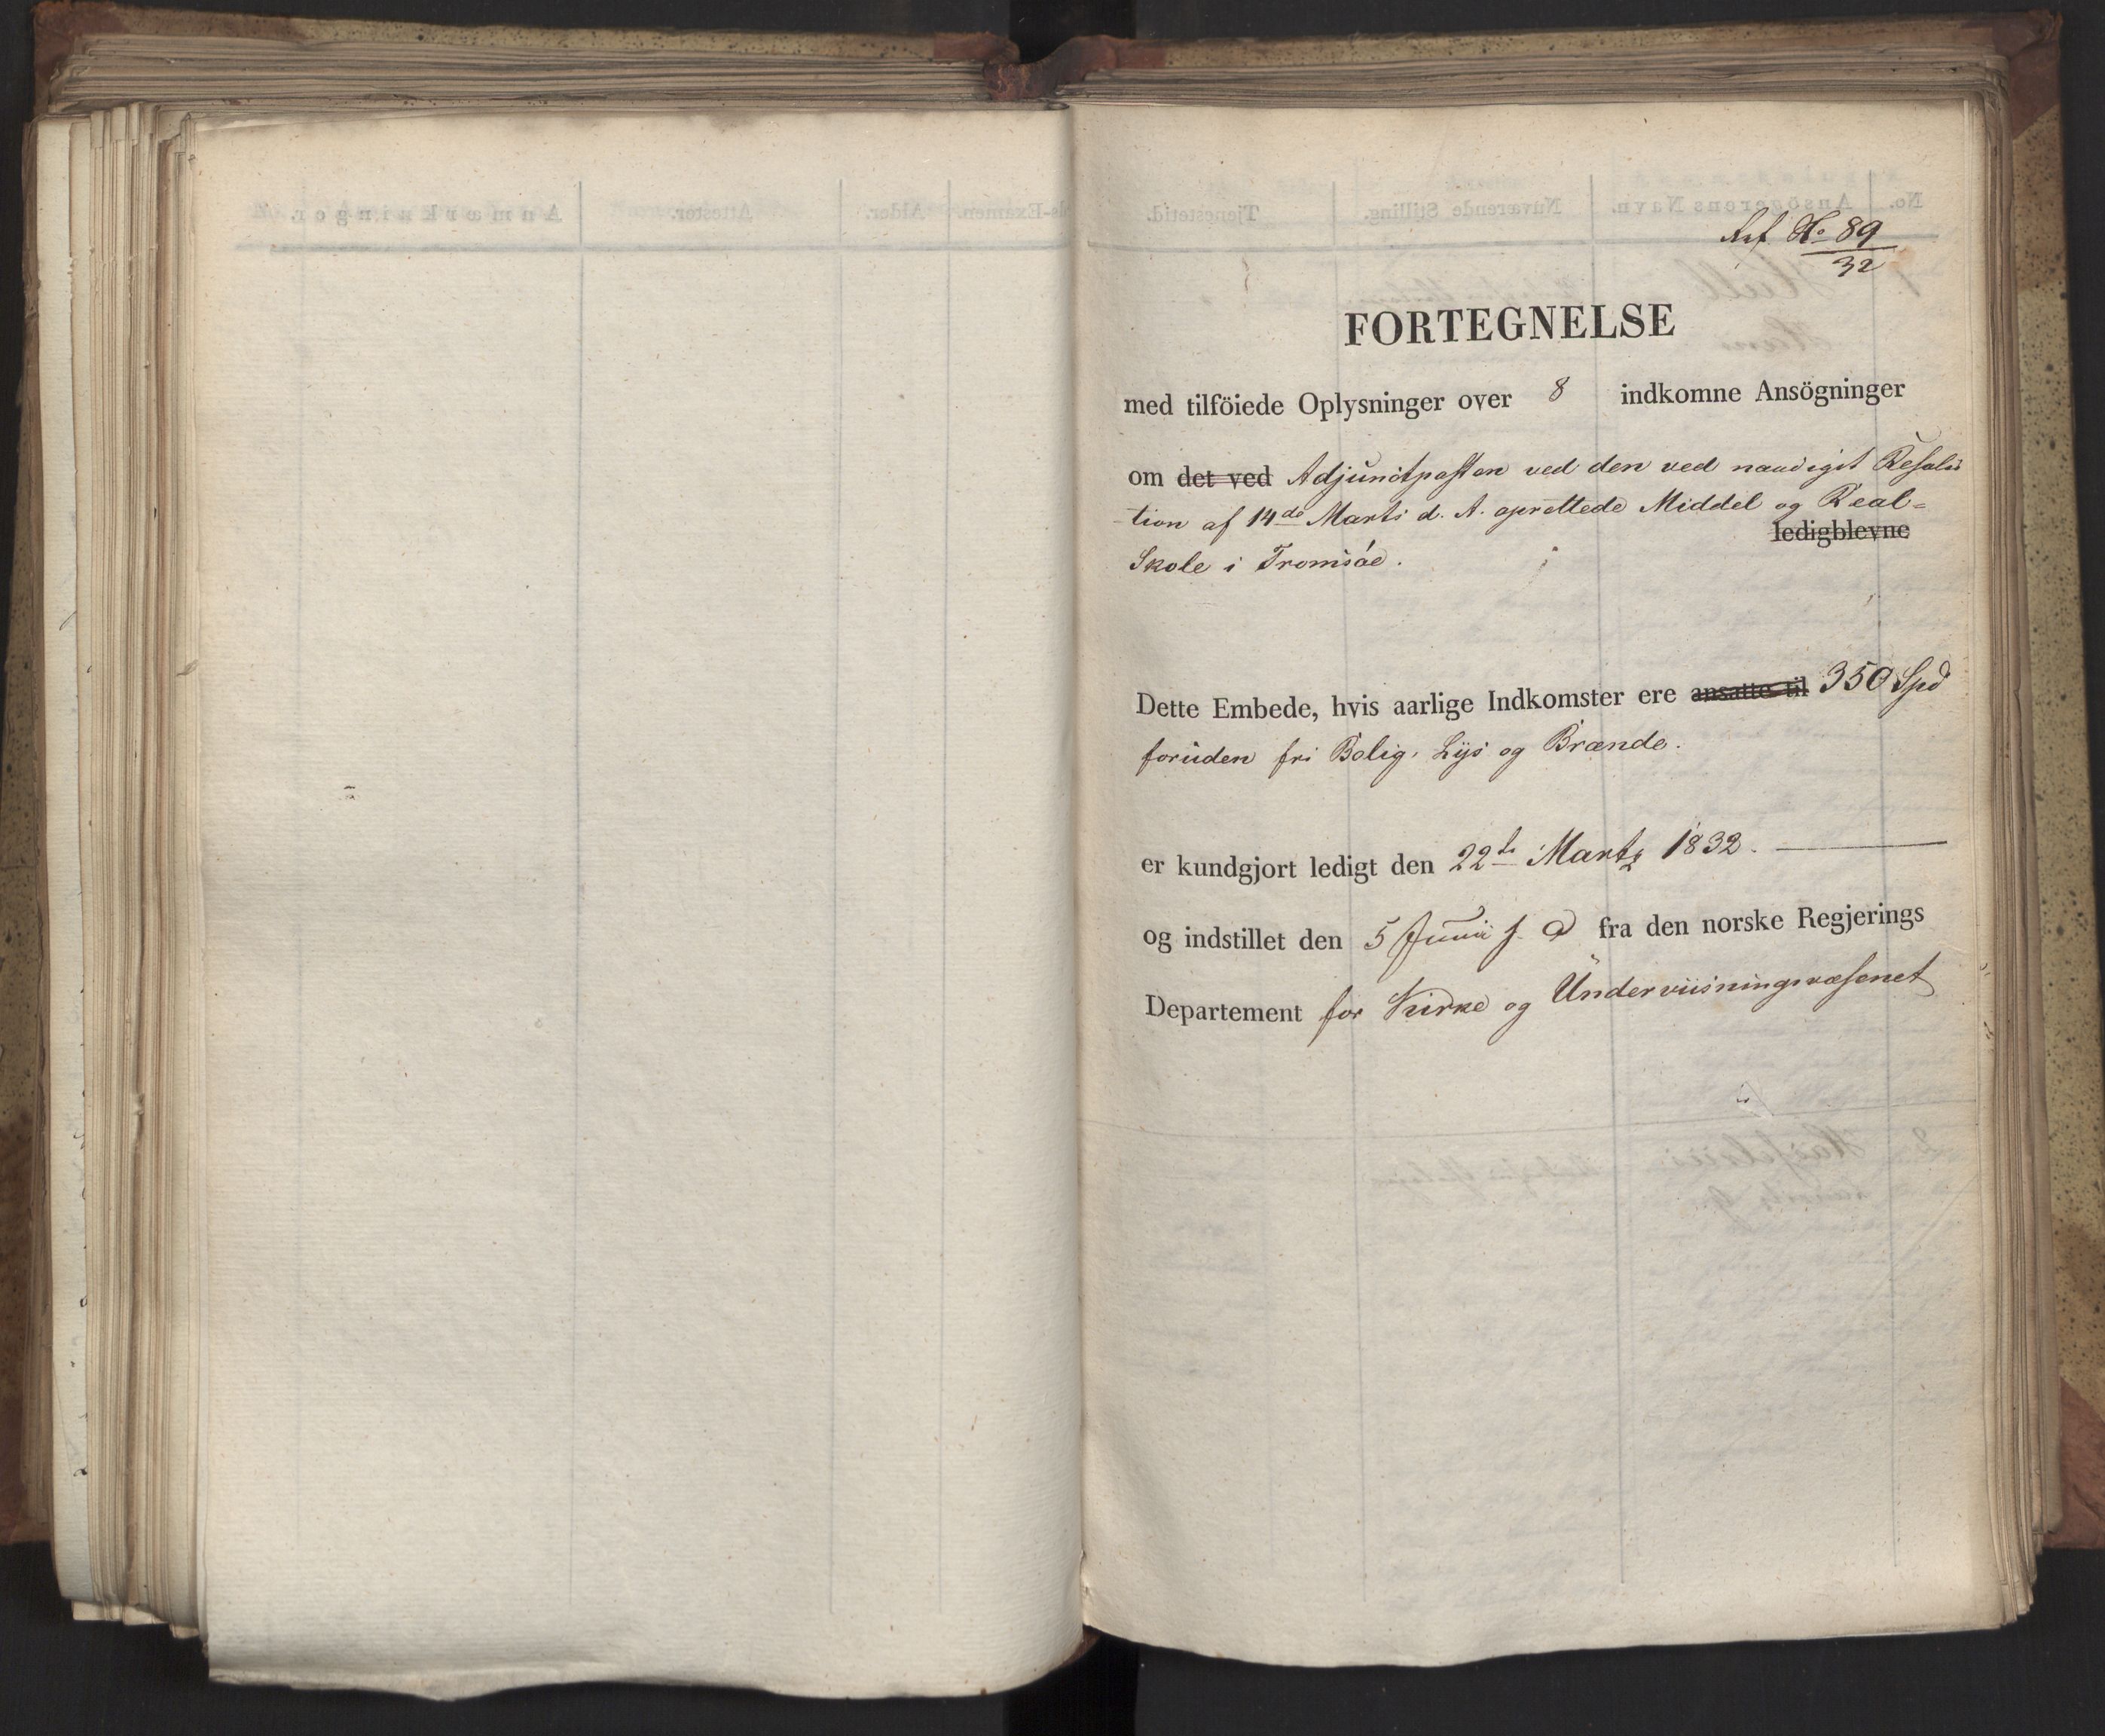 Ref. No 89
32
FORTEGNELSE
med tilföiede Oplysninger over 8 indkomne Ansögninger
om det ved Adjunctposten ved den ved naadigst Resolu
tion af 14de Marts d. A. oprettede Middel og Real-
ledigblevne
Skole i Tromsöe.
Dette Embede, hvis aarlige Indkomster ere ansatte til 350 Spd
foruden fri Bolig, Lys og Brænde.
er kundgjort ledigt den 22de Marts 1832.
og indstillet den 5 Juni s. A fra den norske Regjerings
Departement for Kirke og Underviisningsvæsenet